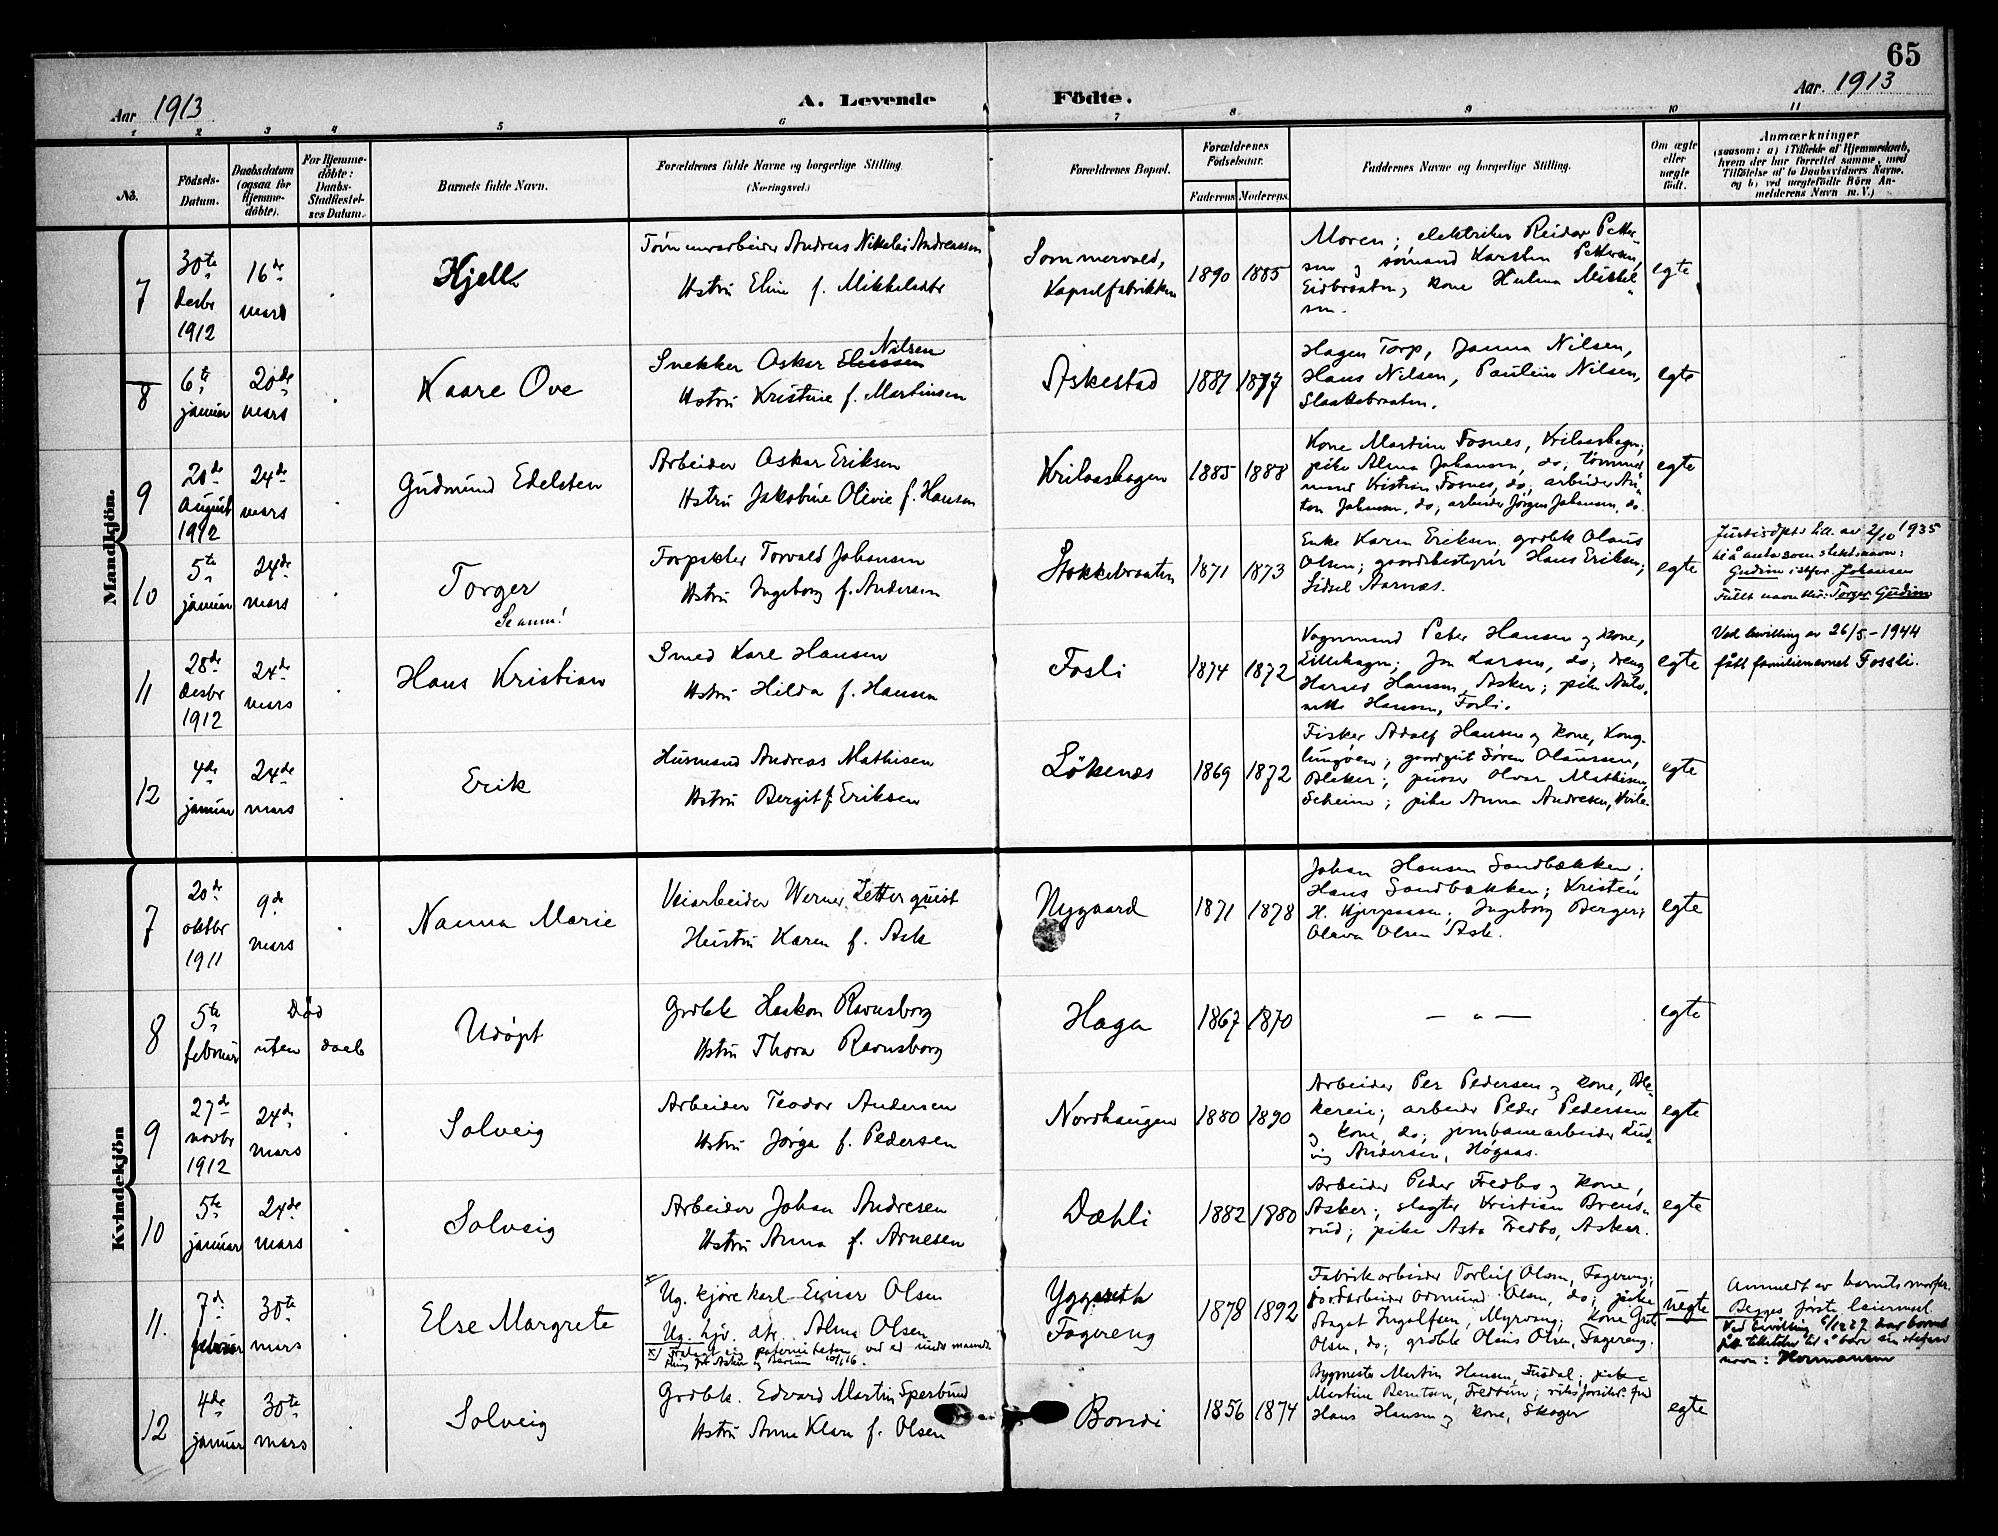 65
Aar 1913
A. Levende
Födte.
Aar. 1913
1 2 3 4 5 6 7 8 9 10 11
No.
Födsels-Datum.
Daabsdatum (ogsaa for Hjemmedöbte).
For Hjemmedöbte: Daabs-Stadfæstelses Datum.
Barnets fulde Navn.
Forældrenes fulde Navne og borgerlige Stilling (Næringsvei.)
Forældrenes Bopæl.
Forældrenes Födselsaar.
Faderens Moderens
Faddernes Navne og borgerlige Stilling.
Om ægte eller uægte födt.
Anmærkninger
(saasom: a) i Tilfælde af Hjemmedaab,
hvem der har forrettet samme, med
Tilföielse af to Daabsvidners Navne,
og b) ved uægtefödte Börn An-
melderens Navn m. V.)
Mandkjön.
7
30te
desbr
1912
16de
mars
Kjell
Andreas Nikolai Andreassen
Hstru Eline f. Mikkelsdtr
Sommervold,
Kapselfabrikken
1890 1885
Moren; elektriker Reidar Petter-
sen og sömand Karsten Pettersen,
Eidbraaten, kone Helma Mikkel-
sen.
egte
8
6te
januar
20de
mars
Kaare Ove
Nilsen
Snekker Oskar
Hstru Kristine f. Martinsen
Askestad
1881 1877
Hagen Torp, Janna Nilsen,
Hans Nilsen, Pauline Nilsen,
Slaakebraaten.
egte
9
20de
august
1912
24de
mars
Gudmund Edelsten
Arbeider Oskar Eriksen
Hstru Jakobine Olivie f. Hansen
1885 1888
Kone Martine Fosnes,
pike Alma Johansen, do; tömmer-
mand Kristian Fosnes, do, arbeider An-
ton Johansen, do, arbeider Jörgen Johansen, do.
egte
10
5te
januar
24de
mars
Torger
Se anm!
Torvald Johansen
Hstru Ingeborg f. Andersen
Stokkebraaten
1871 1873
Enke Karen Eriksen, grdbk Olaus
Olsen; gaardsbestyrer Hans Eriksen;
Sidsel Aarnæs.
egte
Justisdpts till. av 2/10 1935
til å anta som slektsnavn:
Gudim istfor Johansen
Fullt navn blir: Torger Gudim
11
28de
desbr
1912
24de
mars
Hans Kristian
Smed Karl Hansen
Hstru Hilda f. Hansen
Fosli
1874 1872
Vognmand Peter Hansen og kone,
Jon Karsen, do; dreng
Harald Hansen, Asker; pike Anto-
nette Hansen, Fosli.
egte
Ved bevilling av 26/5-1944
fått familienavnet Fossli.
12
4de
januar
24de
mars
Erik
Husmand Andreas Mathisen
Hstru Bergit f. Eriksen
Lökenes
1869 1872
Fisker Adolf Hansen og kone, Kong-
lungöen; gaardgut Sören Olaussen,
Bleker; Olvar Mathisen,
pike Anna Andresen,
egte
Kvindekjön
7
20de
oktbr
1911
9de
mars
Nanna Marie
Veiarbeider Werner Zetterquist
Hustru Karen f. Ask
Nygaard
1871 1878
Johan Hansen Sandbækken;
Hans Sandbækken; Kristen
H. Ingeborg Berger;
Olava Olsen Ask.
egte
8
5te
februar
Död
uten daab
Udöpt
Grdbk Haakon Ravnsborg
Hstru Thora Ravnsborg
Haga
1867 1870
— „ —
egte
9
27de
novbr
1912
24de
mars
Solveig
Arbeider Teodor Andersen
Hstru Jörga f. Pedersen
Nordhaugen
1880 1890
Arbeider Per Pedersen og kone, Ble-
kereie; arbeider Peder Pedersen
og kone, do; jernbanearbeider Lud-
vig Andersen, Högaas.
egte
10
5te
januar
24de
mars
Solveig
Arbeider Johan Andresen
Hstru Anna f. Arnesen
Dæhli
1882 1880
Arbeider Peder Fredbo og kone,
Asker; slagter Kristian Brens-
rud; pike Asta Fredbo, Asker.
egte
11.
7de
februar
30te
mars
Else Margrete
x Ug. kjörekarl Einar Olsen
Ug. hjv. dtr. Alma Olsen
Yggeseth
Fagereng
1878 1892
Fabrikarbeider Torleif Olsen, Fagereng;
jordarbeider Odmund Olsen, do; pike
Aagot Ingolfsen, Myrvang; kone Grete
Olsen, do; grdbk Olaus Olsen, Fagereng.
uegte
Anmeldt av barnets morfar.
Begges förste leiermaal
Ved bevilling 6/12 27 har barnet
fåt tilladelse til å bære
navn: Hermansen
12
4de
januar
30te
mars
Solveig
Grdbk. Edvard Martin Sperbund
Hstru Anna Klara f. Olsen
Bondi
1856 1874
Bygmester Martin Hansen, pike
Martine Berntsen, Fredtun;
Hans Hansen og kone, Skoger
egte